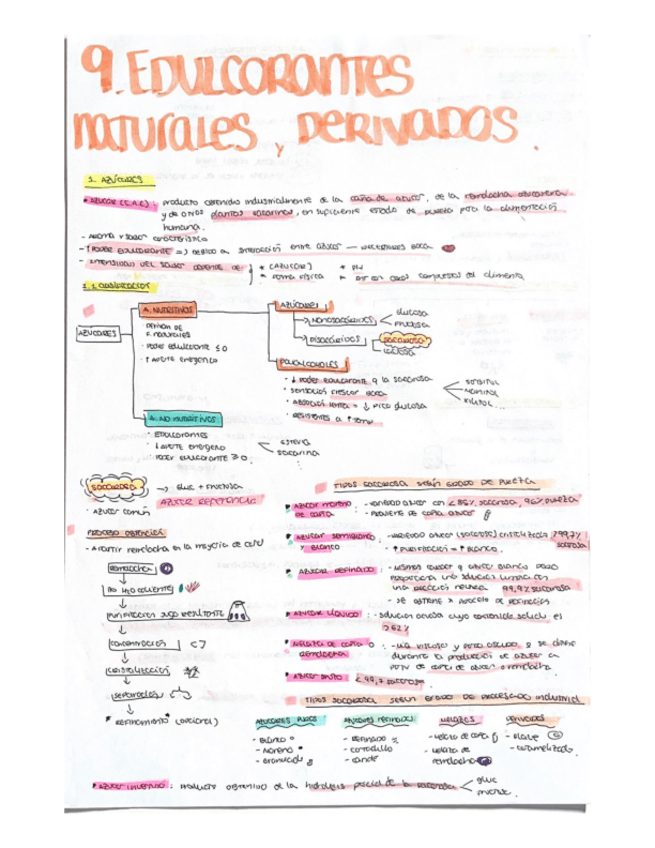 9. EDULCORANTES
NATURALES y DERIVADOS.
1. AZÚCARES
AZÚCAR (C.A.E): producto obtenido industrialmente de la caña de azúcar, de la remolacha azucarera
y de otras plantas sacarinas, en suficiente grado de pureza para la alimentación
humana.
- Aroma y sabor característico
- ↑ PODER EDULCORANTE => debido a interacción entre azúcar — receptores boca
- INTENSIDAD DEL SABOR DEPENDE DE:
* [AZÚCAR] * pH
* Forma física * otros compuestos del alimento
1.1 CLASIFICACIÓN
AZÚCARES
A. NUTRITIVOS
F. naturales
· Poder edulcorante
· ↑ Aporte energético
AZÚCARES
MONOSACÁRIDOS
Glucosa
Fructosa
DISACÁRIDOS
SACAROSA
Lactosa
POLIALCOHOLES
· ↓ PODER EDULCORANTE q la sacarosa
· Sensación frescor boca
· Absorción lenta = ↓ pico glucosa
· RESISTENTES A ↑ temp
SORBITOL
MANITOL
XILITOL...
A. NO NUTRITIVOS
· EDULCORANTES
· ↓ Aporte energético
· Poder edulcorante
STEVIA
SACARINA
SACAROSA → Glu + Fructosa
AZÚCAR REFERENCIA
· Azúcar común
PROCESO OBTENCIÓN
- A partir remolacha en la mayoría de casos
REMOLACHA
H2O CALIENTE
PURIFICACIÓN JUGO RESULTANTE
CONCENTRACIÓN
CRISTALIZACIÓN
SEPARACIÓN
REFINAMIENTO (opcional)
TIPOS SACAROSA SEGÚN GRADO DE PUREZA
AZÚCAR MORENO DE CAÑA: - variedad azúcar con <85% sacarosa, 96% pureza
- PROVIENE DE caña azúcar
AZÚCAR SEMIBLANCO y BLANCO - variedad azúcar (sacarosa) cristalizada >99,7% sacarosa
· ↑ PURIFICACIÓN = ↑ BLANCO.
AZÚCAR REFINADO - Mismo color q azúcar blanco pero
proporciona una solución limpia con
una reacción neutra 99,9% sacarosa
- SE OBTIENE x PROCESO DE REFINACIÓN
AZÚCAR LÍQUIDO: - solución acuosa cuyo contenido sólido es
>62%
MELAZA DE CAÑA o remolacha: - líq viscoso y pardo oscuro, q se obtiene
durante la producción de azúcar en
partir de caña de azúcar o remolacha
AZÚCAR BRUTO <99,7 sacarosa
TIPOS SACAROSA SEGÚN GRADO DE PROCESADO INDUSTRIAL
AZÚCARES PUROS
- Blanco
- Moreno
- Granulado
AZÚCARES REFINADOS
- Refinado
- Cortadillo
- Candi
MELAZAS
- Melaza de caña
- Melaza de remolacha
DERIVADOS
- Glacé
- Caramelizado
AZÚCAR INVERTIDO: PRODUCTO OBTENIDO DE LA hidrólisis parcial de la sacarosa
gluc
fructos.